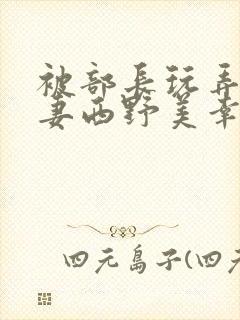 被部長玩弄
妻西野美幸
四元島子(四元